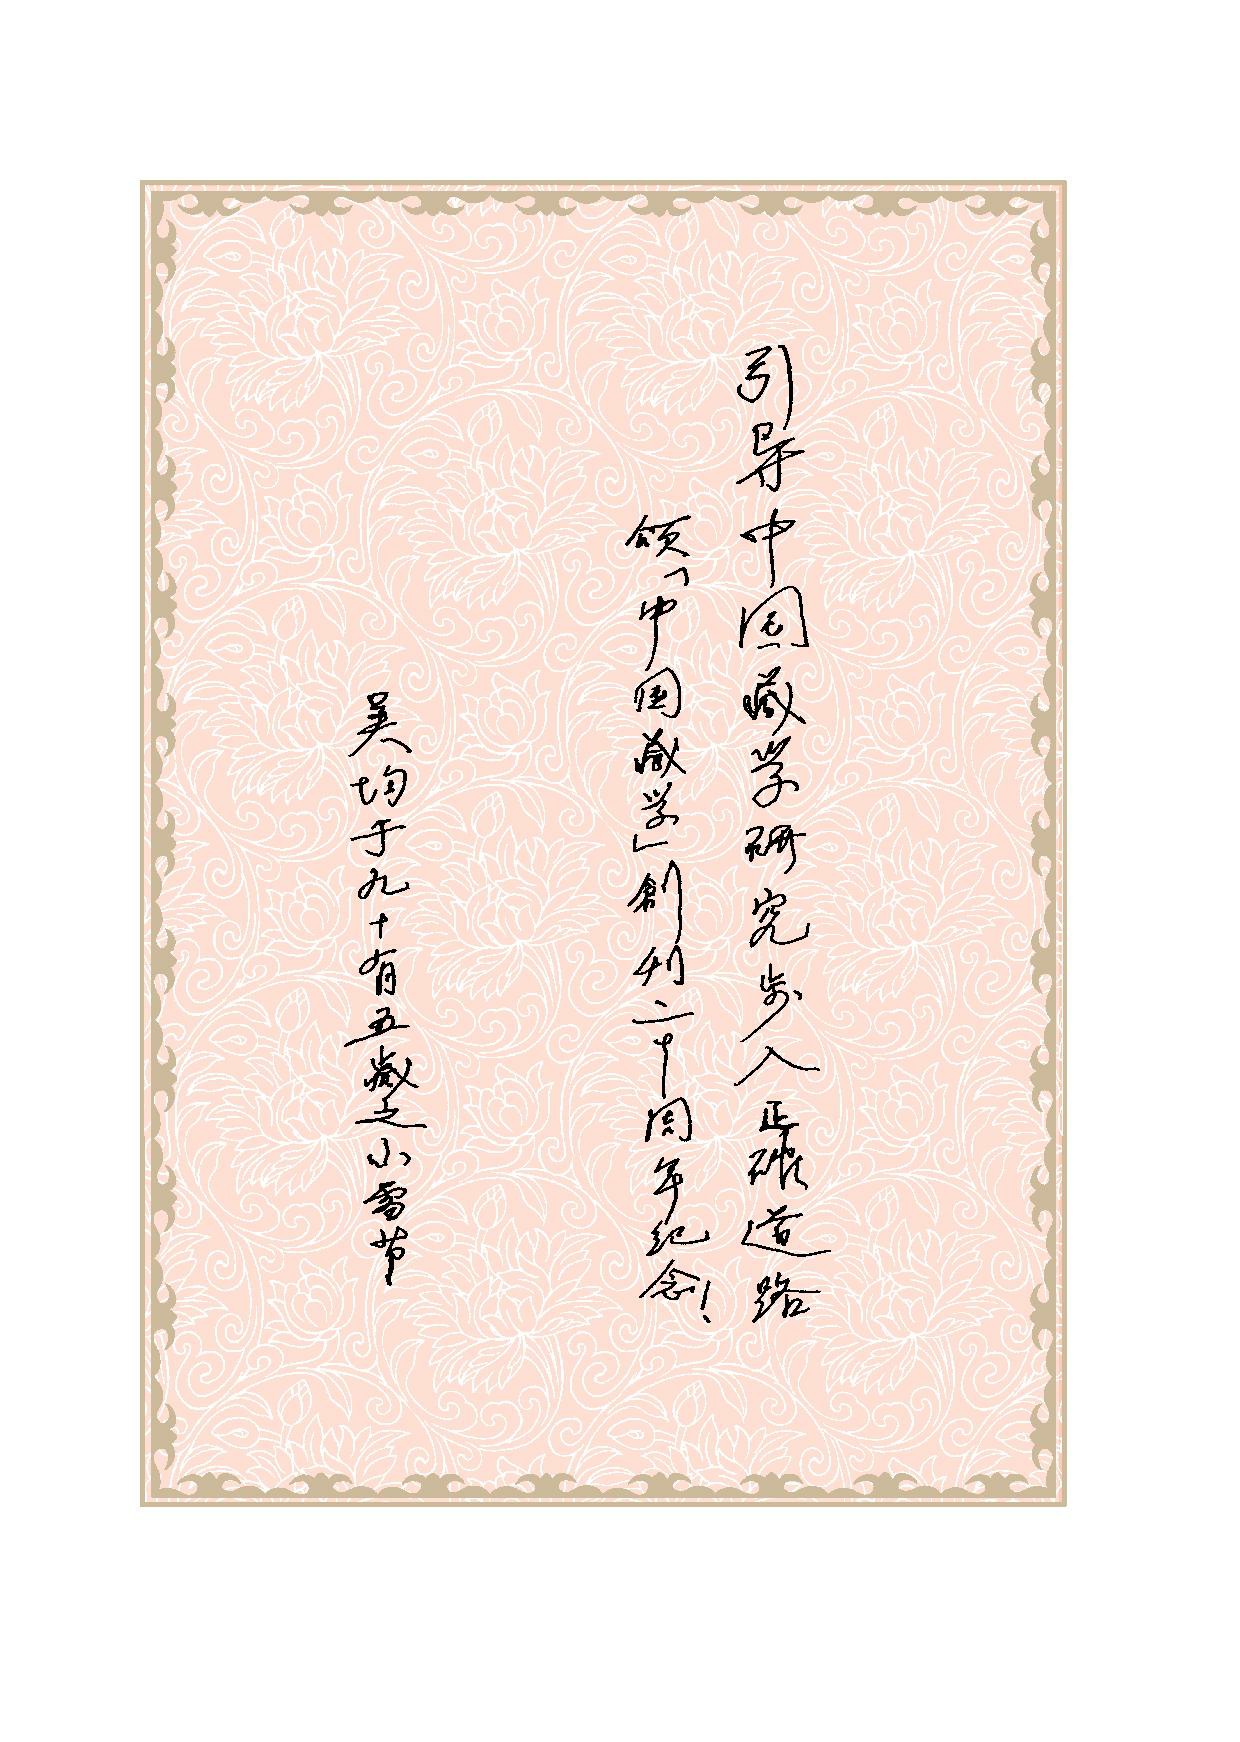 引导中国藏学研究步入正確道路
颂「中国藏学」創刊二十周年纪念！
吴均于九十有五歲之小雪节